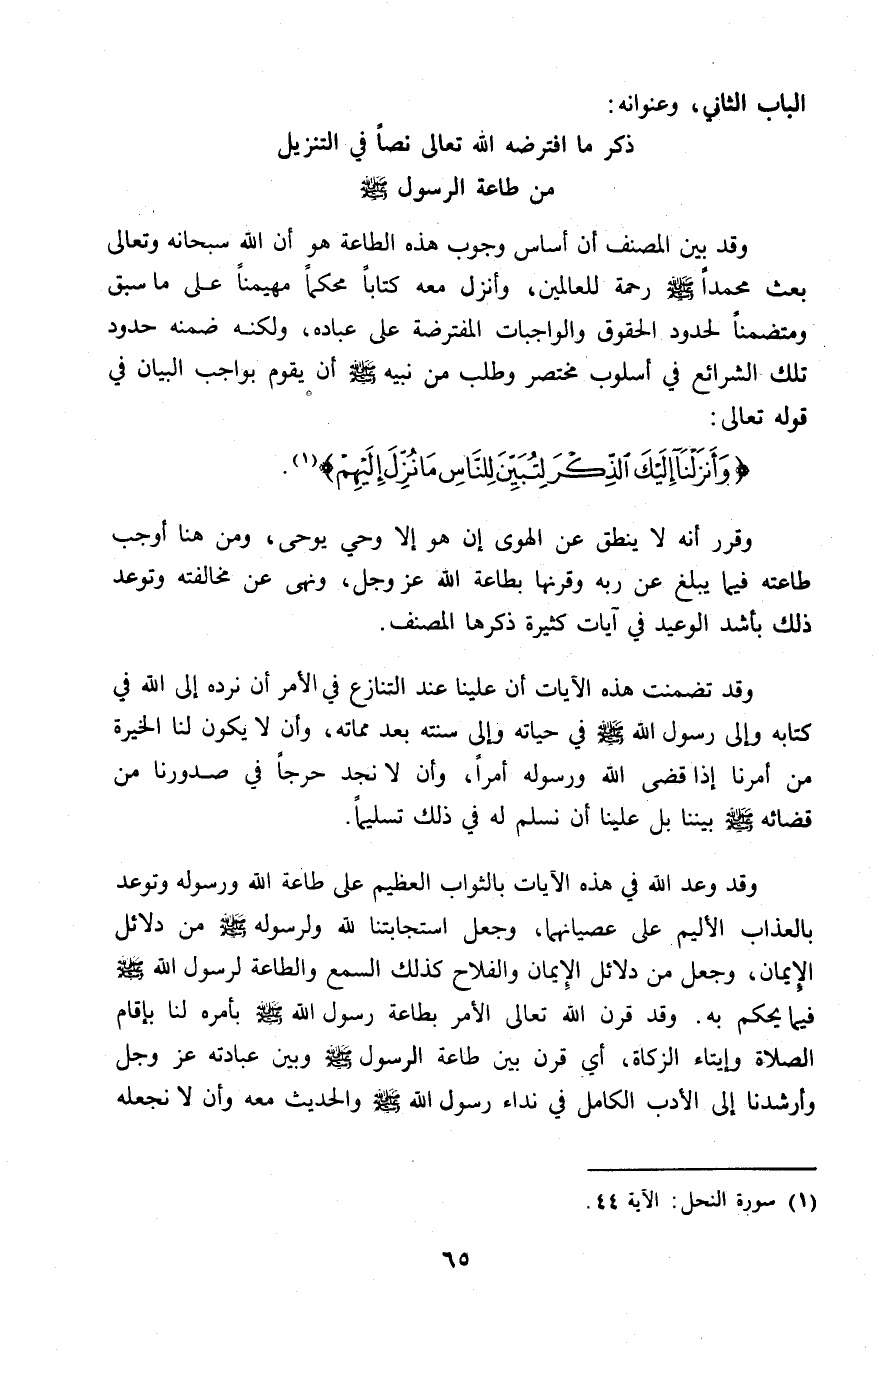 الباب الثاني، وعنوانه:
ذكر ما افترضه الله تعالى نصاً في التنزيل
من طاعة الرسول ﷺ
وقد بين المصنف أن أساس وجوب هذه الطاعة هو أن الله سبحانه وتعالى
بعث محمداً ﷺ رحمة للعالمين، وأنزل معه كتاباً محكماً مهيمناً على ما سبق
ومتضمناً لحدود الحقوق والواجبات المفترضة على عباده، ولكنه ضمنه حدود
تلك الشرائع في أسلوب مختصر وطلب من نبيه ﷺ أن يقوم بواجب البيان في
قوله تعالى:
﴿وَأَنزَلْنَآ إِلَيْكَ ٱلذِّكْرَ لِتُبَيِّنَ لِلنَّاسِ مَا نُزِّلَ إِلَيْهِمْ﴾(١).
وقرر أنه لا ينطق عن الهوى إن هو إلا وحي يوحى، ومن هنا أوجب
طاعته فيما يبلغ عن ربه وقرنها بطاعة الله عز وجل، ونهى عن مخالفته وتوعد
ذلك بأشد الوعيد في آيات كثيرة ذكرها المصنف.
وقد تضمنت هذه الآيات أن علينا عند التنازع في الأمر أن نرده إلى الله في
كتابه وإلى رسول الله ﷺ في حياته وإلى سنته بعد مماته، وأن لا يكون لنا الخيرة
من أمرنا إذا قضى الله ورسوله أمراً، وأن لا نجد حرجاً في صدورنا من
قضائه ﷺ بيننا بل علينا أن نسلم له في ذلك تسليماً.
وقد وعد الله في هذه الآيات بالثواب العظيم على طاعة الله ورسوله وتوعد
بالعذاب الأليم على عصيانهما، وجعل استجابتنا لله ولرسوله ﷺ من دلائل
الإيمان، وجعل من دلائل الإيمان والفلاح كذلك السمع والطاعة لرسول الله ﷺ
فيما يحكم به. وقد قرن الله تعالى الأمر بطاعة رسول الله ﷺ بأمره لنا بإقام
الصلاة وإيتاء الزكاة، أي قرن بين طاعة الرسول ﷺ وبين عبادته عز وجل
وأرشدنا إلى الأدب الكامل في نداء رسول الله ﷺ والحديث معه وأن لا نجعله
(١) سورة النحل: الآية ٤٤.
٦٥